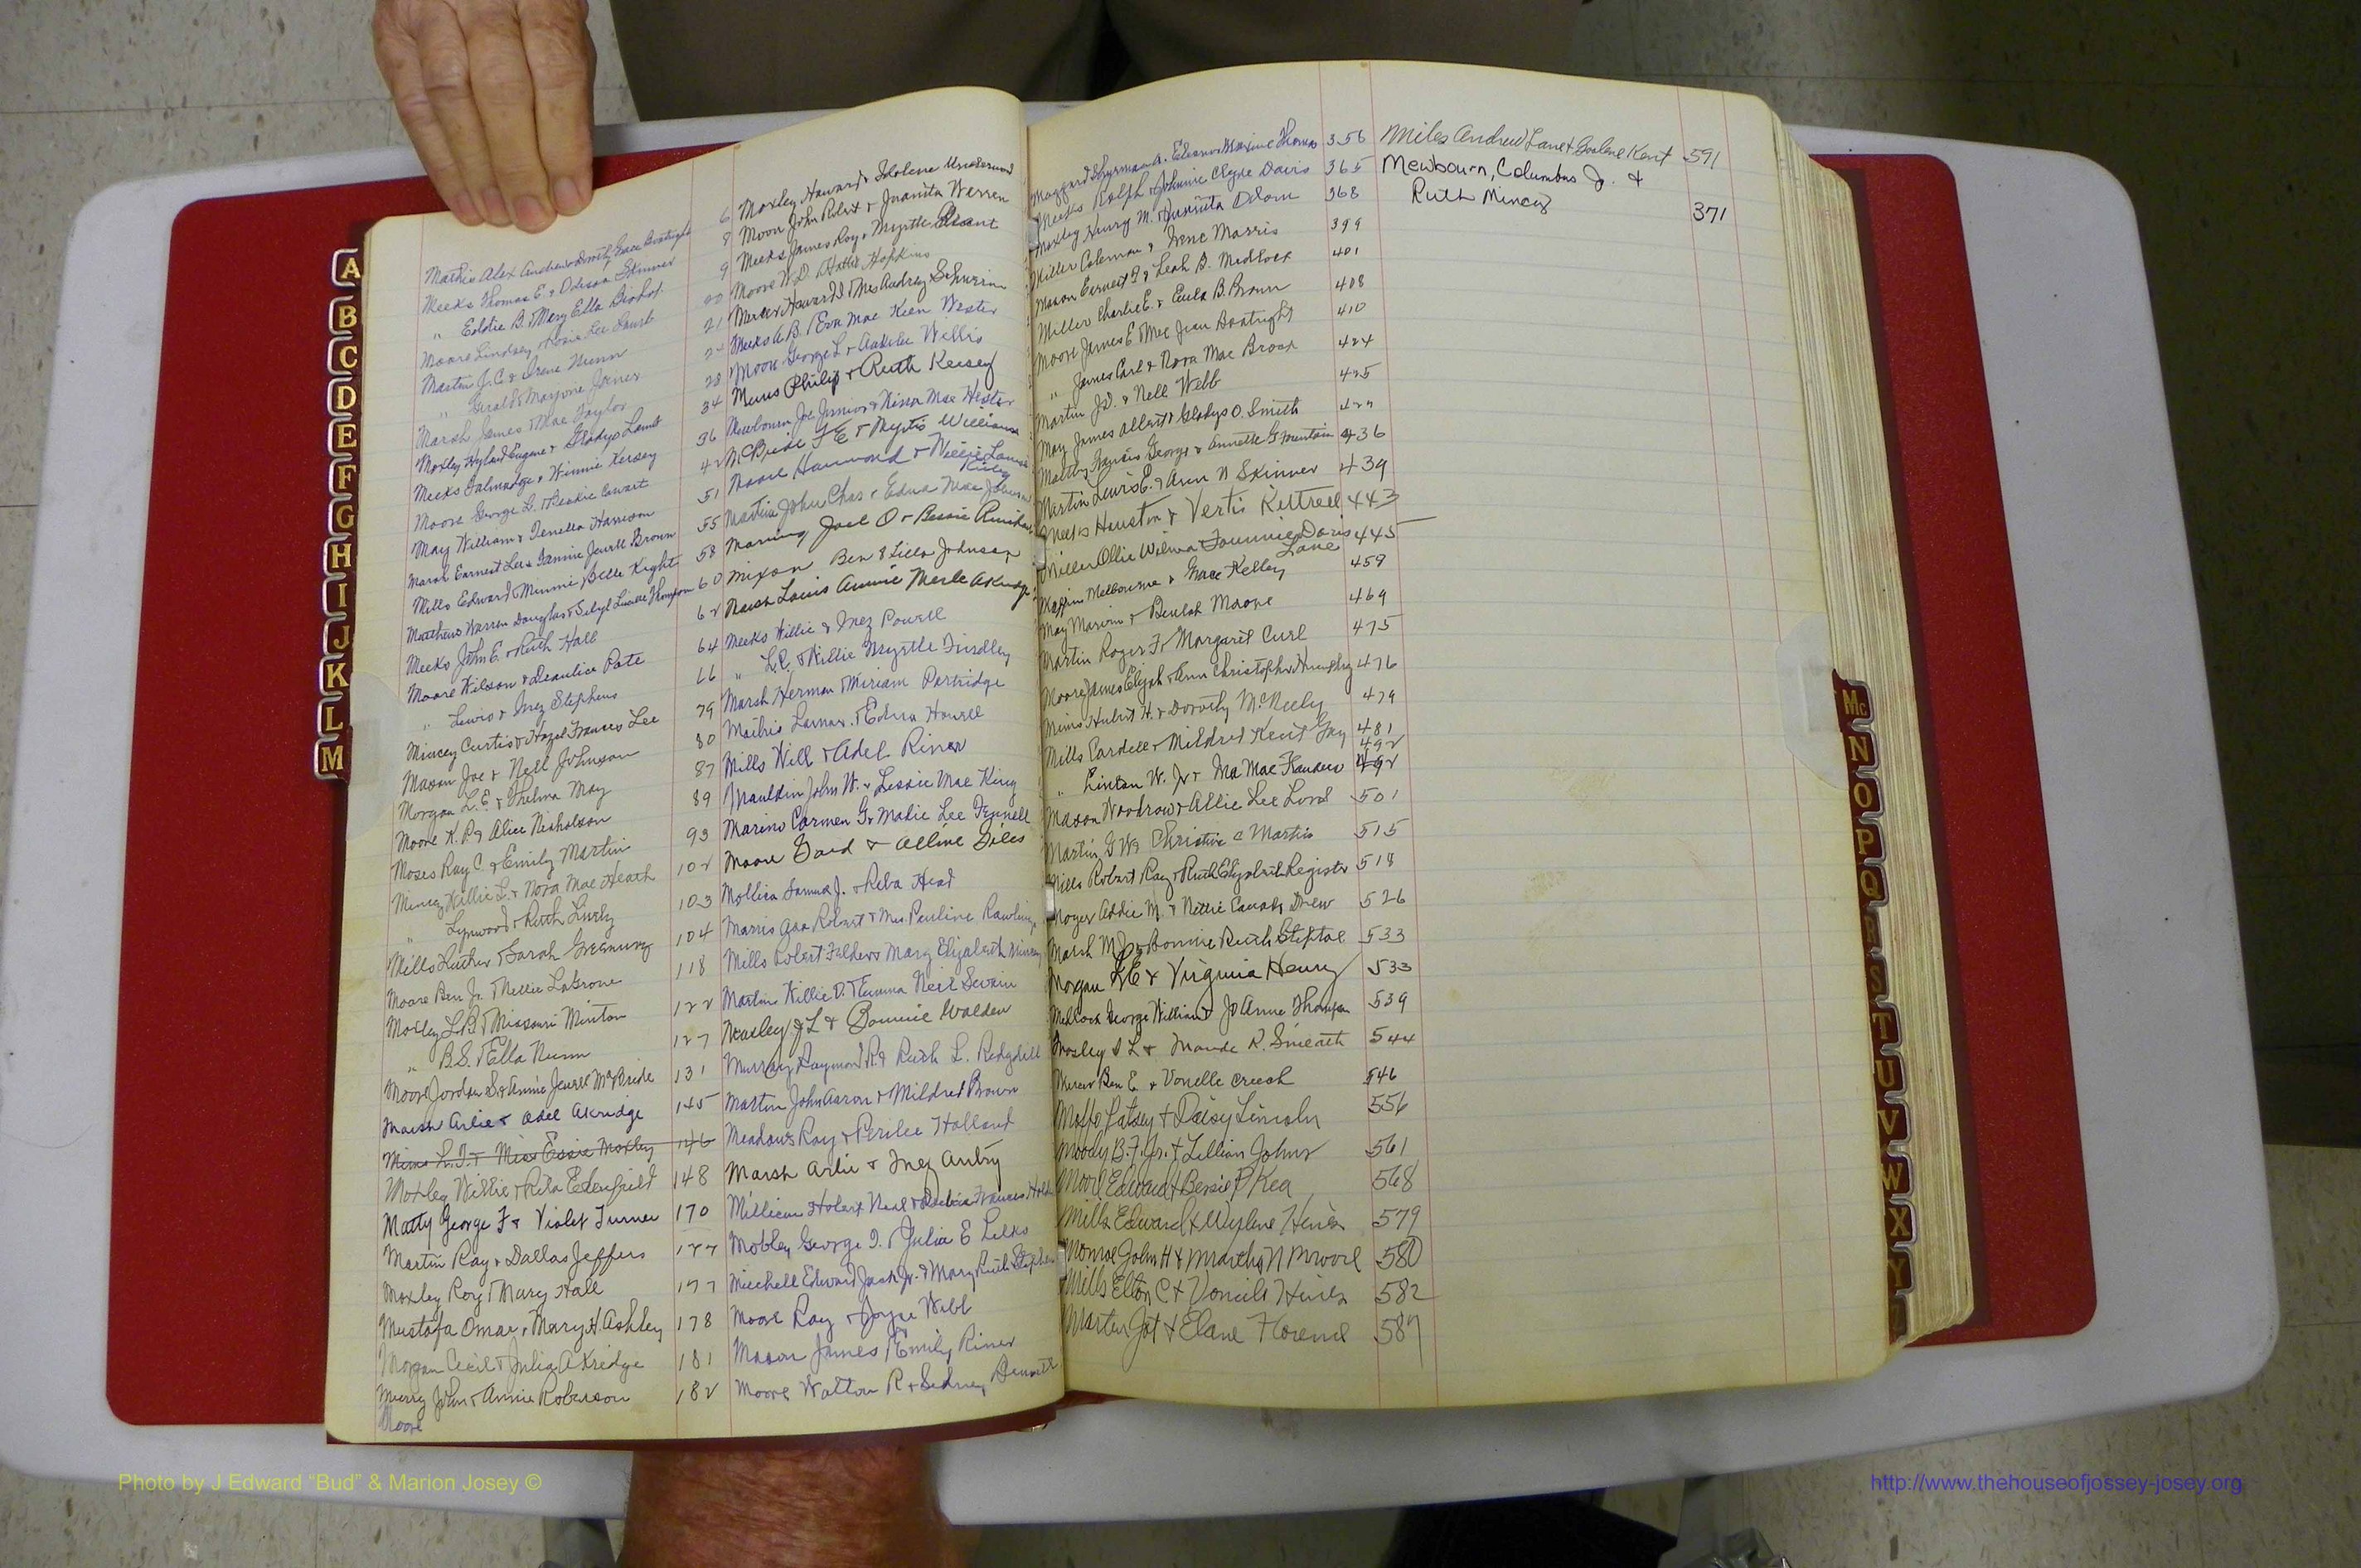 A
B
C
D
E
F
G
H
I
J
K
L
M
Mathis Alex Andrew & Dorothy Grace Boatright 6
Meeks Thomas E. & Odessa Skinner 8
" Eddie B. & Mary Ella Bishop 9
Moore Lindsey & Rosie Lee Faust 20
Martin J.C. & Irene Nunn 21
" Gerald & Marjorie Joiner
Marsh James & Mae Taylor 28
Moxley Hyland Eugene & Gladys Lamb 34
Meeks Talmadge & Winnie Kersey 36
Moore George L. & Beakie Ewart 42
May William & Tenella Harrison 51
Marsh Earnest Lee & Fannie Jewell Brown 55
Mills Edward & Minnie Belle Kight 58
Matthews Warren Douglas & Sibyl Lucille Thompson 60
Meeks John E. & Ruth Hall 62
Moore Wilson & Beautice Pate 64
" Lewis & Inez Stephens 66
Mincey Curtis & Hazel Frances Lee 79
Mason Joe & Nell Johnson 80
Morgan L.E. & Thelma May 87
Moore K.P. & Alice Nicholson 89
Moses Ray C. & Emily Martin 93
Mincey Willie L. & Nora Mae Heath 102
" Lynwood & Ruth Lively 103
Mills Luther & Sarah 104
Moore Ben Jr. & Nellie LaGrone 118
Motley L.B. & Missouri Minton 122
" B.S. & Ella Nunn 127
Moore Jordan S. & Annie Jewell McBride 131
Marsh Arlie & Odel Akridge 145
Mims L.T. & Miss Essie Moxley 146
Moxley Willie & Reba Edenfield 148
Matty George F & Violet Turner 170
Martin Ray & Dallas Jeffers 177
Moxley Roy & Mary Hall 177
Mustafa Omar & Mary H. Ashley 178
Morgan Cecil & Julia Akridge 181
Merry John & Annie Roberson 182
Moore
Moxley Howard & Idolene Underwood
Moon John Robert & Juanita Warren
Meeks James Roy & Myrtle
Moore W.D. & Hattie Hopkins
Mercer Howard I & Mrs Audrey
Meeks A.B. & Eva Mae Kien Wester
Moon George L & Willis
Philip & Ruth Kersey
Mewbourn Joe Junior & Nina Mae Hester
McBride F E & Myrtis Williams
Moore Hammond & Willie Louise
Martin John Chas & Edna Mae Johnson
Joel O & Bessie
Mixon Ben & Lilla Johnson
Marsh Louis Annie Merle Akridge
Meeks Willie & Inez Powell
" L.R. & Willie Myrtle Findley
Marsh Herman & Miriam Partridge
Mathis Lamar & Edna Howell
Mills Will & Adel Riner
Mauldin John W. & Lessie Mae King
Marino Carmen G & Madie Lee Fennell
Moore Ford & Alline Giles
Mollica Samuel J. & Reba Head
Marris Asa Robert & Mrs. Pauline Rawlings
Mills Robert Felder & Mary Elizabeth Mincey
Martin Willie D. & Emma Neil Swain
Moxley J L & Bonnie Walden
Murray Raymond R. & Ruth L. Redgdill
Martin John Aaron & Mildred Brown
Meadows Ray & Perilee Holland
Marsh Arlie & Inez Autry
Millican Hobert Neal & Frances
Mobley George I. & Julia E Lelks
Mitchell Edward Jack Jr. & Mary Ruth Stephens
Moore Ray & Joyce Webb
Mason James & Emily Riner
Moore Walton R & Sidney Bennett
Maggard Thurman A. Eleanor Maxine Thomas 356
Meeks Ralph & Johnnie Clyde Davis 365
Moxley Henry M. & Juanita Odom 368
Miller Coleman & Irene Morris 399
Mason Earnest J & Leah B. Medlock 401
Miller Charlie E. & Eula B. Brown 408
Moore James E & Mae Jean Boatright 410
" James Carl & Nora Mae Brock 424
Martin J.D. & Nell Webb 425
May James Albert & Gladys O. Smith
Maltby Francis George & Annette G Fountain 436
Martin Lewis E. & Ann N Skinner 439
Meeks Houston & Vertis Kittrell 443
Miller Ollie Wilma Davis 445
Lane
Melbourne & Grace Kelley 459
May Marvin & Beulah Moore 469
Martin Roger F & Margaret Curl 475
Moore James Elijah & Ann Christopher Humphry 476
Mims Hubert H. & Dorothy McNeely 479
Mills Cardell & Mildred Kent Gay 481
492
" Linton W. Jr & Ida Mae Flanders 492
Mason Woodrow & Allie Lee Lord 501
Martin G W & Christine C Martin 515
Mills Robert Ray & Ruth Elizabeth Register 518
Moyer Addie M. & Nettie Drew 526
Marsh M J & Bonnie Ruth Steptoe 533
Morgan & Virginia Henry 533
Medlock George William & Jo Anne Thompson 539
Moxley S L & Maude R. 544
Mercer Ben E. & Vonelle Creech 546
Patsey & Daisy Lincoln 556
Moody B.F. Jr. & Lillian Johns 561
Moore Edward & Bessie P Kea 568
Mills Edward & Wylene Hines 579
Monroe John H & Martha N Moore 580
Mills Elton C & Voncile Hines 582
Martin Jat & Elane Florence 587
Miles Andrew Lane & Goolene Kent 591
Mewbourn, Columbus Jr. &
Ruth Mincey 371
Mc
N
O
P
Q
R
S
T
U
V
W
X
Y
Photo by J Edward “Bud” & Marion Josey ©
http://www.thehouseofjossey-josey.org